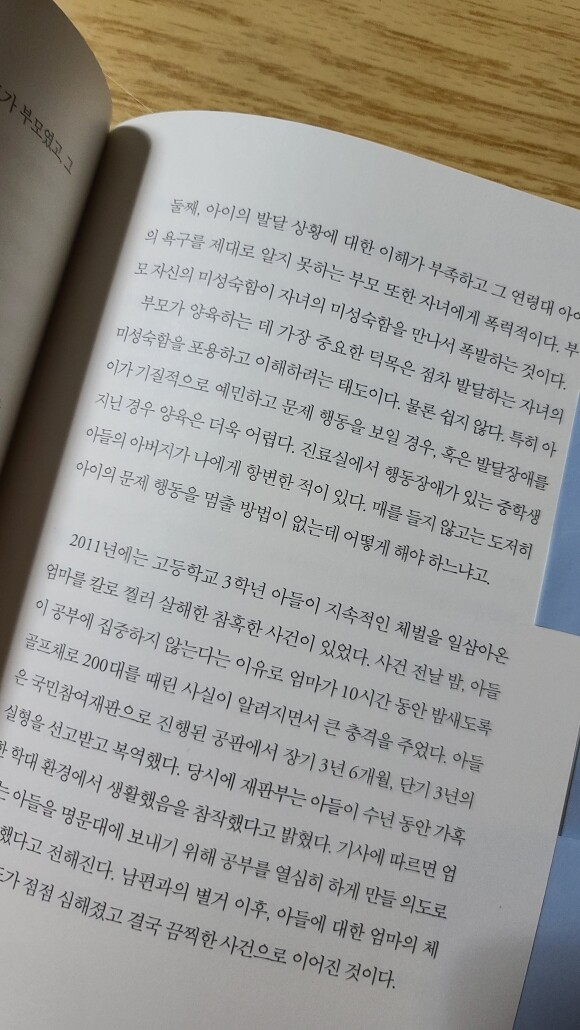 가 부모였고, 그
둘째, 아이의 발달 상황에 대한 이해가 부족하고 그 연령대 아이
의 욕구를 제대로 알지 못하는 부모 또한 자녀에게 폭력적이다. 부
모 자신의 미성숙함이 자녀의 미성숙함을 만나서 폭발하는 것이다.
부모가 양육하는 데 가장 중요한 덕목은 점차 발달하는 자녀의
미성숙함을 포용하고 이해하려는 태도이다. 물론 쉽지 않다. 특히 아
이가 기질적으로 예민하고 문제 행동을 보일 경우, 혹은 발달장애를
지닌 경우 양육은 더욱 어렵다. 진료실에서 행동장애가 있는 중학생
아들의 아버지가 나에게 항변한 적이 있다. 매를 들지 않고는 도저히
아이의 문제 행동을 멈출 방법이 없는데 어떻게 해야 하느냐고.
2011년에는 고등학교 3학년 아들이 지속적인 체벌을 일삼아온
엄마를 칼로 찔러 살해한 참혹한 사건이 있었다. 사건 전날 밤, 아들
이 공부에 집중하지 않는다는 이유로 엄마가 10시간 동안 밤새도록
골프채로 200대를 때린 사실이 알려지면서 큰 충격을 주었다. 아들
은 국민참여재판으로 진행된 공판에서 장기 3년 6개월, 단기 3년의
실형을 선고받고 복역했다. 당시에 재판부는 아들이 수년 동안 가혹
한 학대 환경에서 생활했음을 참작했다고 밝혔다. 기사에 따르면 엄
는 아들을 명문대에 보내기 위해 공부를 열심히 하게 만들 의도로
했다고 전해진다. 남편과의 별거 이후, 아들에 대한 엄마의 체
가 점점 심해졌고 결국 끔찍한 사건으로 이어진 것이다.